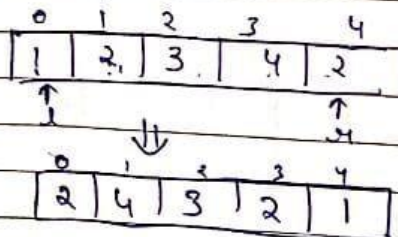 0 1 2 3 4
1 2 3 4 2
l r
0 1 2 3 4
2 4 3 2 1